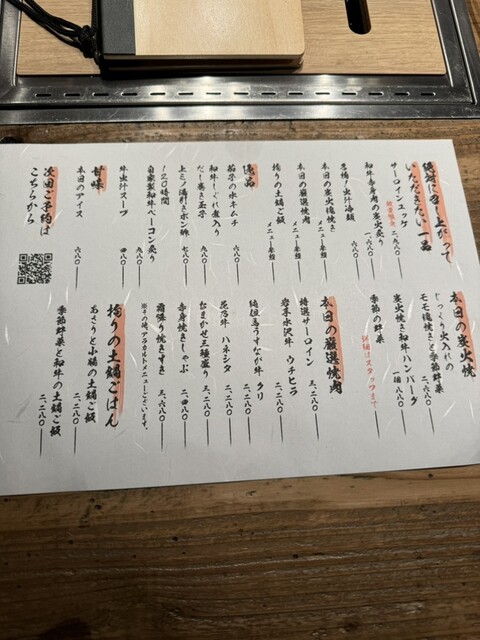 絶対に召し上がって
いただきたい一品
サーロインユッケ 二、九八〇
和牛赤身肉の炭火炙り 一、六八〇
名物!生汁冷麺 六八〇
本日の炭火復焼き メニュー参照
本日の厳選焼肉 メニュー参照
拘りの土鍋ご飯 メニュー参照
逸品
茄子の水キムチ 六八〇
和牛しぐれ煮入り
だし巻き玉子 九八〇
上ミノ湯引きポン酢 七八〇
120時間
自家製和牛ベーコン炙り 九八〇
牛出汁スープ 四八〇
甘味
本日のアイス 六八〇
次回ご予約は
こちらから
本日の炭火焼
じっくり火入れの
モモ復焼きと季節野菜 二、六八〇
炭火焼き和牛ハンバーグ 一個 八八〇
季節の野菜 詳細はスタッフまで
本日の厳選焼肉
特選サーロイン 三、二八〇
岩手水沢牛 ウチヒラ 二、二八〇
純但馬うすなが牛 クリ 二、二八〇
花乃牛 ハネシタ 二、二八〇
おまかせ三種盛り 三、二八〇
赤身焼きしゃぶ 二、四八〇
霜降り焼きすき 三、二八〇
※その他、アラカルトメニューございます。
拘りの土鍋ごはん
あさりと小柱の土鍋ご飯 二、二八〇
季節野菜と和牛の土鍋ご飯 三、二八〇